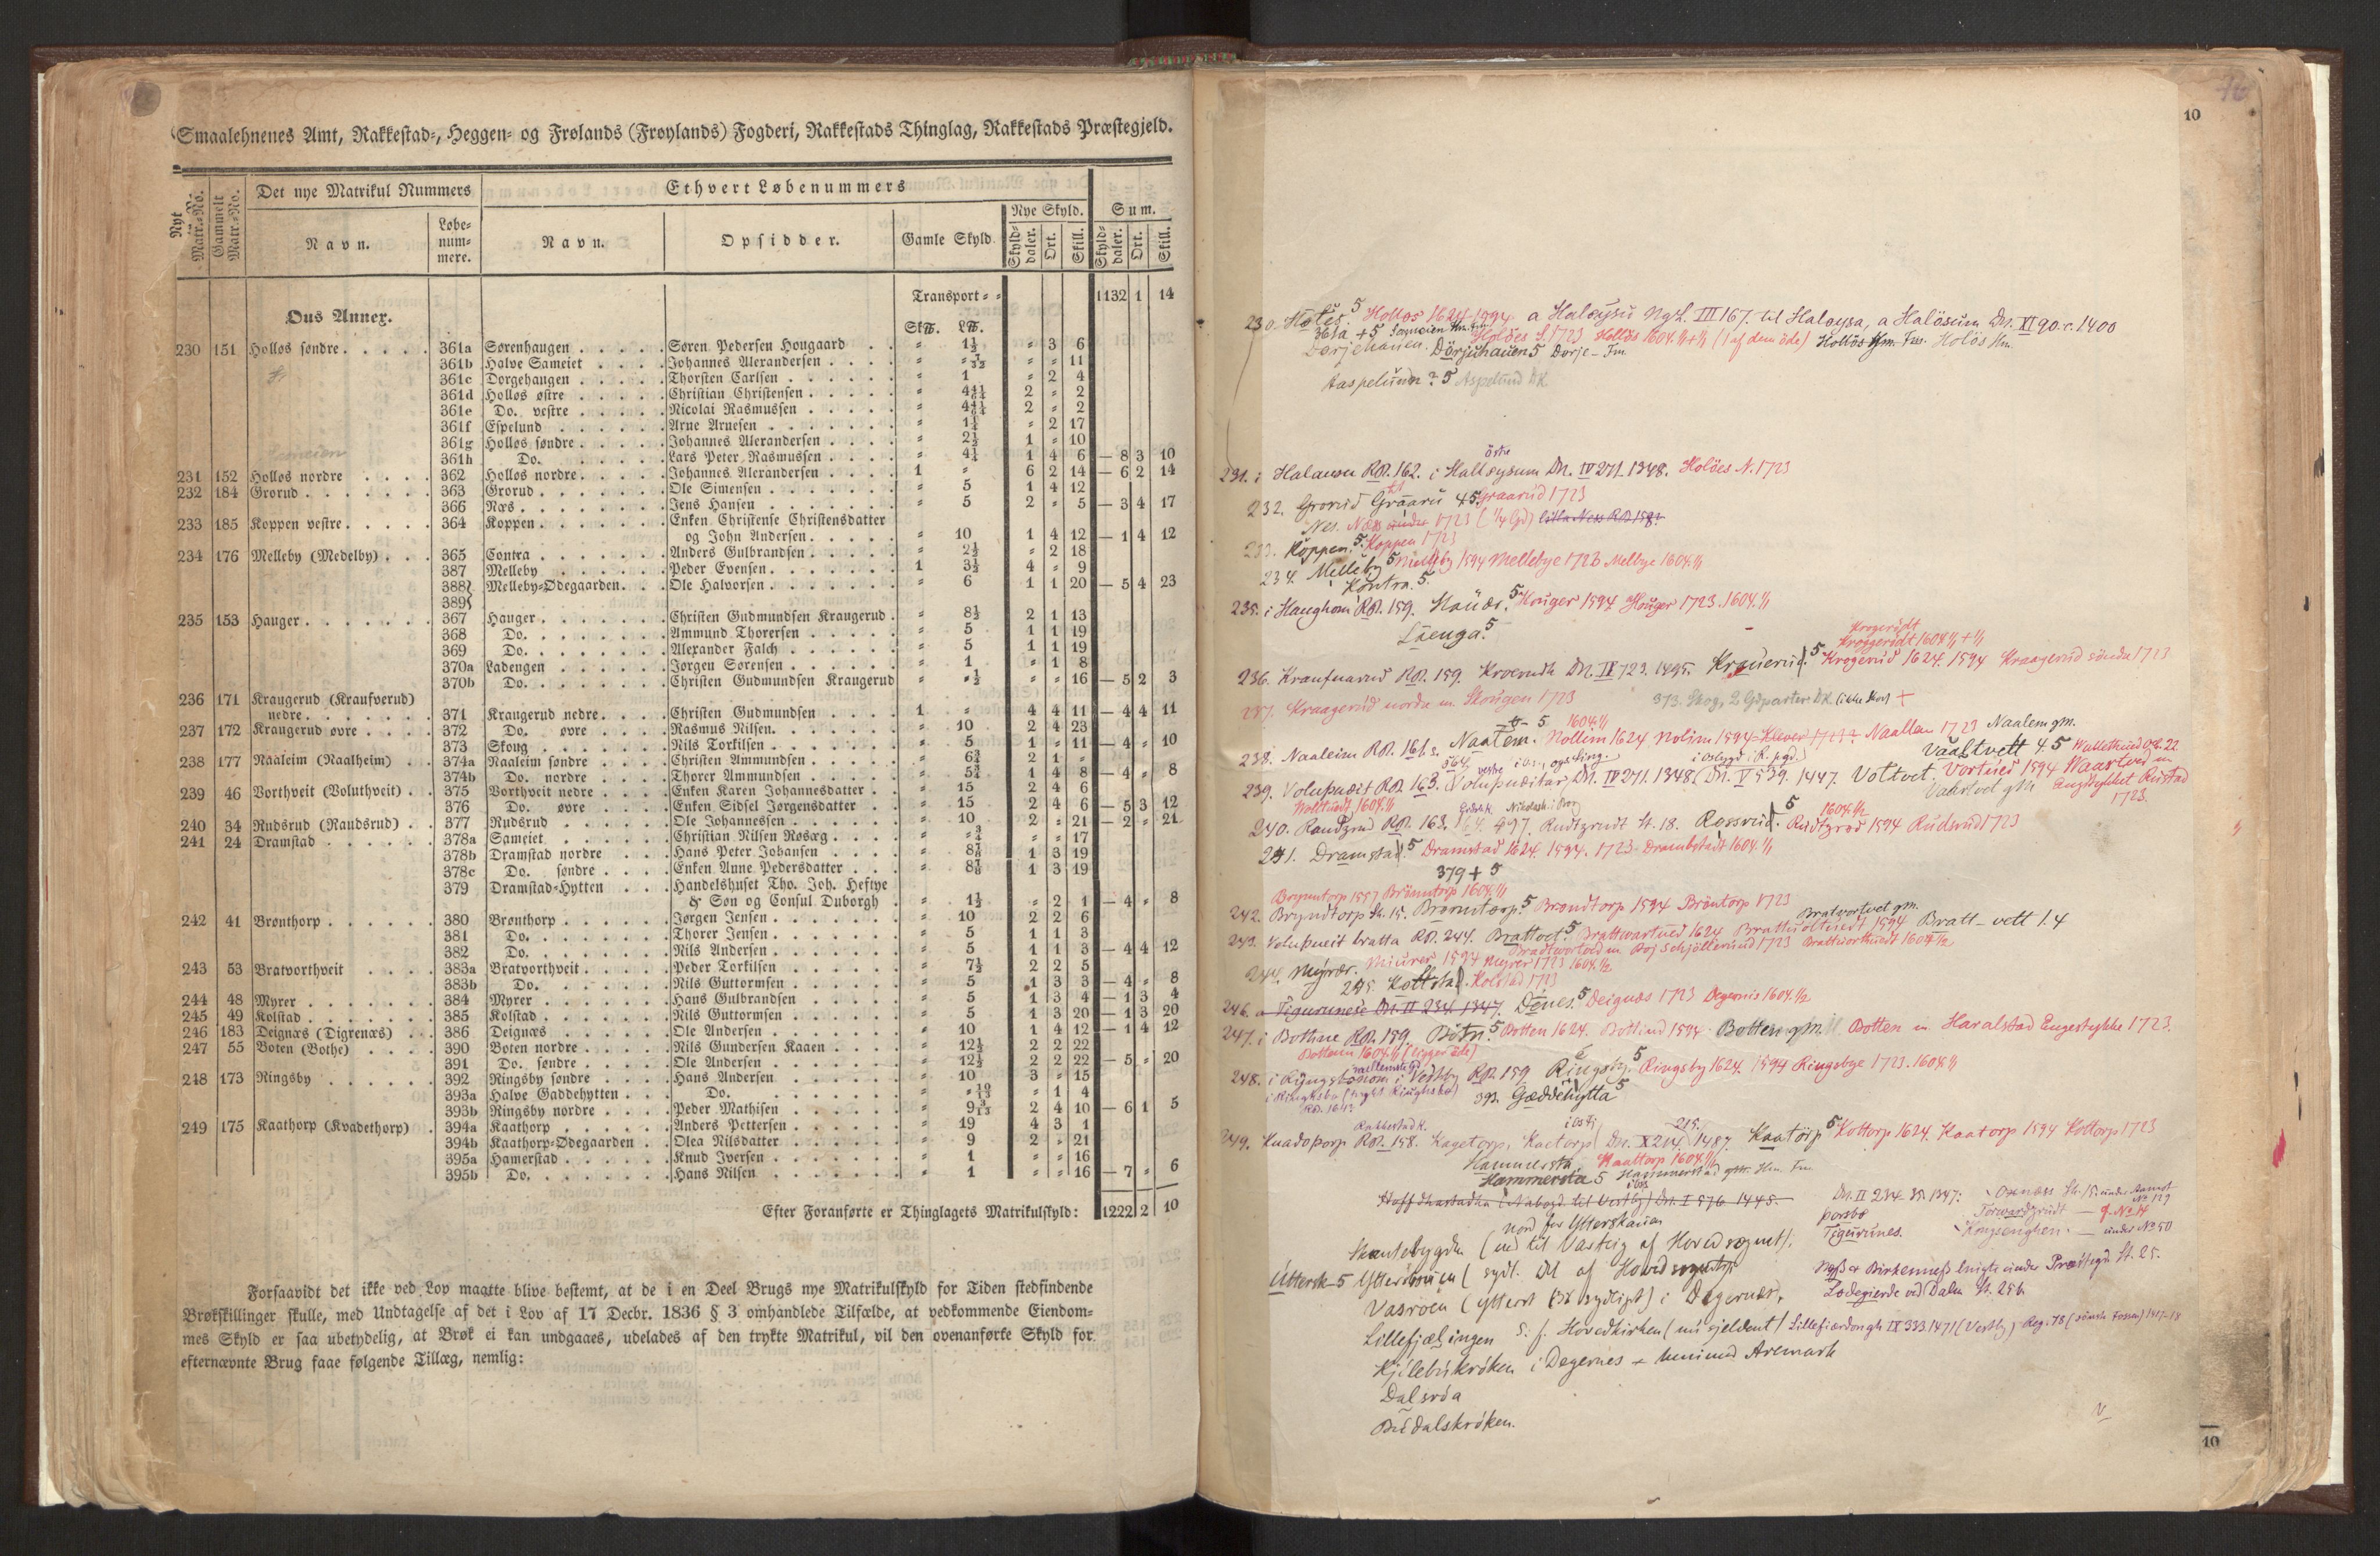 Smaalehnenes Amt, Rakkestad-, Heggen- og Frølands (Frøylands) Fogderi, Rakkestads Thinglag, Rakkestads Præstegjeld.
Nyt Matr.-No. Gammelt Matr.-No. Det nye Matrikul Nummers Ethvert Løbenummers
Navn. Løbe-nummere. Navn. Opsidder. Gamle Skyld. Nye Skyld. Sum.
Skylddaler. Ort. Skill. Skylddaler. Ort. Skill.
Transport 1132 1 14
Ous Annex.
230 151 Holløs søndre 361a Sørenhaugen Søren Pedersen Hougaard " 1½ " 3 6
361b Halve Sameiet Johannes Alexandersen " " 11
361c Dorgehaugen Thorsten Carlsen " 1 " 2 4
361d Holløs østre Christian Christensen 2 " 2
361e Do. vestre Nicolai Rasmussen 2 " 2
361f Espelund Arne Arnesen " 1¼ " 2 17
361g Holløs søndre Johannes Alexandersen " 2½ 1 " 10
361h Do. Lars Peter Rasmussen " 4¼ 1 4 6 — 8 3 10
231 152 Holløs nordre 362 Holløs nordre Johannes Alexandersen 1 " 6 2 14 — 6 2 14
232 184 Grorud 363 Grorud Ole Simensen " 5 1 4 12
366 Næs Jens Hansen " 5 2 " 5 — 3 4 17
233 185 Koppen vestre 364 Koppen Enken Christense Christensdatter
og John Andersen " 10 1 4 12 — 1 4 12
234 176 Melleby (Medelby) 365 Contra Anders Gulbrandsen " 2½ " 2 18
387 Melleby Peder Evensen 1 3½ 4 " 9
388} Melleby-Ødegaarden Ole Halvorsen " 6 1 1 20 — 5 4 23
389}
235 153 Hauger 367 Hauger Christen Gudmundsen Kraugerud " 8½ 2 1 13
368 Do. Ammund Thorersen " 5 1 1 19
369 Do. Alexander Falch " 5 1 1 19
370a Ladengen Jørgen Sørensen " 1 " 1 8
370b Do. Christen Gudmundsen Kraugerud " "½ " " 16 — 5 2 3
236 171 Kraugerud (Kraufverud)
nedre 371 Kraugerud nedre Christen Gudmundsen 1 " 4 4 11 — 4 4 11
237 172 Kraugerud øvre 372 Do. øvre Rasmus Nilsen " 10 2 4 23
373 Skoug Nils Torkilsen " 5 1 " 11 — 4 " 10
238 177 Naaleim (Naalheim) 374a Naaleim søndre Christen Ammundsen " 6¾ 2 1 "
374b Do. nordre Thorer Ammundsen " 5¾ 1 4 8 — 4 " 8
239 46 Vorthveit (Voluthveit) 375 Vorthveit nedre Enken Karen Johannesdatter " 15 2 4 6
376 Do. øvre Enken Sidsel Jørgensdatter " 15 2 4 6 — 5 3 12
240 34 Rudsrud (Raudsrud) 377 Rudsrud Ole Johannessen " 10 2 " 21 — 2 " 21
241 24 Dramstad 378a Sameiet Christian Nilsen Røsæg " "¾ " " 17
378b Dramstad nordre Hans Peter Johansen " 8⅞ 1 3 19
378c Do. søndre Enken Anne Pedersdatter " 8⅞ 1 3 19
379 Dramstad-Hytten Handelshuset Tho. Joh. Heftye
& Søn og Consul Duborgh " 1½ " 2 1 — 4 " 8
242 41 Brønthorp 380 Brønthorp Jørgen Jensen " 10 2 2 6
381 Do. Thorer Jensen " 5 1 1 3
382 Do. Nils Andersen " 5 1 1 3 — 4 4 12
243 53 Bratvorthveit 383a Bratvorthveit Peder Torkilsen " 7½ 2 2 5
383b Do. Nils Guttormsen " 5 1 3 3 — 4 " 8
244 48 Myrer 384 Myrer Hans Gulbrandsen " 5 1 3 4 — 1 3 4
245 49 Kolstad 385 Kolstad Nils Guttormsen " 5 1 3 20 — 1 3 20
246 183 Deignæs (Digrenæs) 386 Deignæs Ole Andersen " 10 1 4 12 — 1 4 12
247 55 Boten (Bothe) 390 Boten nordre Nils Gundersen Kaaen " 12½ 2 2 22
391 Do. søndre Ole Andersen " 12½ 2 2 22 — 5 " 20
248 173 Ringsby 392 Ringsby søndre Hans Andersen " 10 3 " 15
393a Halve Gaddehytten Do. " "10/13 " 1 4
393b Ringsby nordre Peder Mathisen " 9 3/13 2 4 10 — 6 1 5
249 175 Kaathorp (Kvadethorp) 394a Kaathorp Anders Pettersen " 19 4 3 1
394b Kaathorp-Ødegaarden Olea Nilsdatter " 9 2 " 21
395a Hamerstad Knud Iversen " 1 " " 16
395b Do. Hans Nilsen " 1 " " 16 — 7 " 6
Efter Foranførte er Thinglagets Matrikulskyld: 1222 2 10
Forsaavidt det ikke ved Lov maatte blive bestemt, at de i en Deel Brugs nye Matrikulskyld for Tiden stedfindende
Brøkskillinger skulle, med Undtagelse af det i Lov af 17 Decbr. 1836 § 3 omhandlede Tilfælde, at vedkommende Eiendom-
mes Skyld er saa ubetydelig, at Brøk ei kan undgaaes, udelades af den trykte Matrikul, vil den ovenanførte Skyld for
efternævnte Brug faae følgende Tillæg, nemlig:
10
230. Holløs 1624. 1594. a Haløysu NgL. III 167. til Haløysa, a Haløsum Dn. XI 90. c. 1400
Holöes S. 1723 Holløs 1604 (1 af dem öde)
Dörjuhauen 5 Dorje- Fm
Aaspelunn? 5 Aspelund DK
231. i Halausu RB. 162. i Halløysum østre Dn. IV 271. 1348. Holöes N. 1723
232. Grorud Graaru 45 Graarud 1723
Nes. Næs 1723 (¼ Gd) Litla Ness RB 158?
233. Koppen. 5. Koppen 1723
234. Melleby 5 Melleby 1594 Mellebye 1723 Melbye 1604 1/1
Kontra. 5.
235. i Haughom RB. 159. Hauær. 5 Houger 1594 Houger 1723. 1604 1/1
Läenga. 5
Krogerüdt
Kroggerüdt 1604 1/1 + 1/1
236. Kraufuarud RB. 159. Dn. II 723. 1495. Krauerud. 5 Krogerud 1624. 1594 Kraagerud söndre 1723
237. Kraagerud nordre m. Skougen 1723 373. Skog, 2 Gdparter DK (ikke Skov)
238. Naaleim RB. 161. Naalem. Nollim 1624 Nolim 1594 Naallem 1723 Naalem gm.
Vaaltvett 4.5
239. Voluþuæit RB. 163. Voluþuæitar Dn. IV 271. 1348 (Dn. V 539. 1447. Voltvet. Vortued 1594 Waartved m Engstykket Rustad 1723.
240. Raudzrud RB. 163. 497. Rudtzrudt St. 18. Rossrud. 5 Rudtzrød 1594 Rudsrud 1723
241. Dramstad. 5 Dramstad 1624. 1594. 1723 Drambstadt 1604 1/1
379 + 5
Brynntorp 1557 Brönntorp 1604 1/1
242. Bryndtorp St. 15. Brønntorp. 5 Brøndtorp 1594 Bröntorp 1723
Bratvortvet gm.
243. Voluþueit bratta RB. 244. Brattvet. 5 Brattwartued 1624 1594 Bratt-vett 1.4
244. Myrær. Miurer 1594 Myrer 1723 1604 ½
245. Kollstad. Kolstad 1723
246. a Tigurunese Dn. II 234. 1347. Dënes. 5 Deignæs 1723 Degernis 1604 ½
247. i Bothne RB. 159. Bötn. 5 Botten 1624. Bottend 1594. Botten gm. Botten m Haralstad Engestykke 1723.
Bottenn 1604 1/1 (ligger öde)
248. i Ringsbœnom i Vestby RB. 159 Ringsby. 5 Ringsby 1624. 1594 Ringebye 1723. 1604 1/1
393. Gæddehytta 5
249. Kuadoþorp RB. 158. Kagetorp, Kaetorp Dn. X 214, 215. 1487. Kaatorp 5 Kottorp 1624. Kaatorp 1594 Kottorp 1723
Hammersta. Kaattorp 1604 1/1
Hammersta 5 Hammerstad gm. Hm. Fm.
(Nabogd. til Vestby) Dn. I 576. 1445.
Dn. II 234. 35. 1347: Oxnæss St. 15. under Aamot No 129
Þorsbø
Tigurunes.
Kongsenghen — under No 50
nord for Ytterskauen
Skautebygda (ned til Vasteig af Hovedsognet).
Üttersk-5 Ytterskauen (sydl. Del af Hovedsognet)
Vasroen (ytterst (3: sydligst) i Degernes.
Lödegierde ved Dalen St. 25 b.
Lillefjælingen S. f. Hovedkirken (nu sjeldent) Lillefiærdongh IX 333. 1471 (Vestby)
Kjilebukröken i Degernes
Dalsröa
Budalskröken.
10